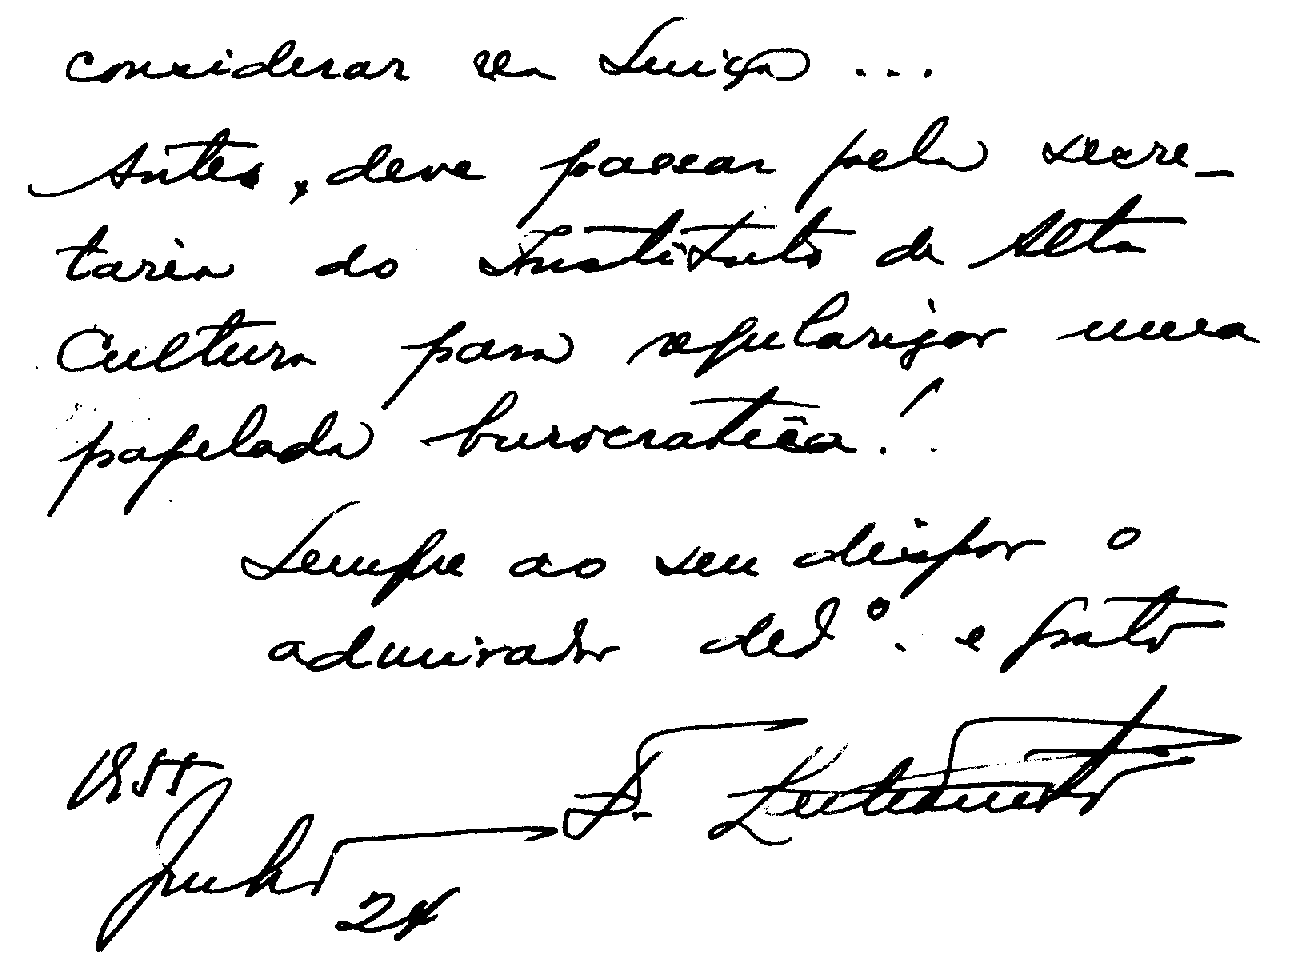 considerar na Suiça ...
Antes, deve passar pela secre-
taria do Instituto de Alta
Cultura para regularizar uma
papelada burocratica!
Sempre ao seu dispor o
admirador ded.º e grato
1955
Junho
24